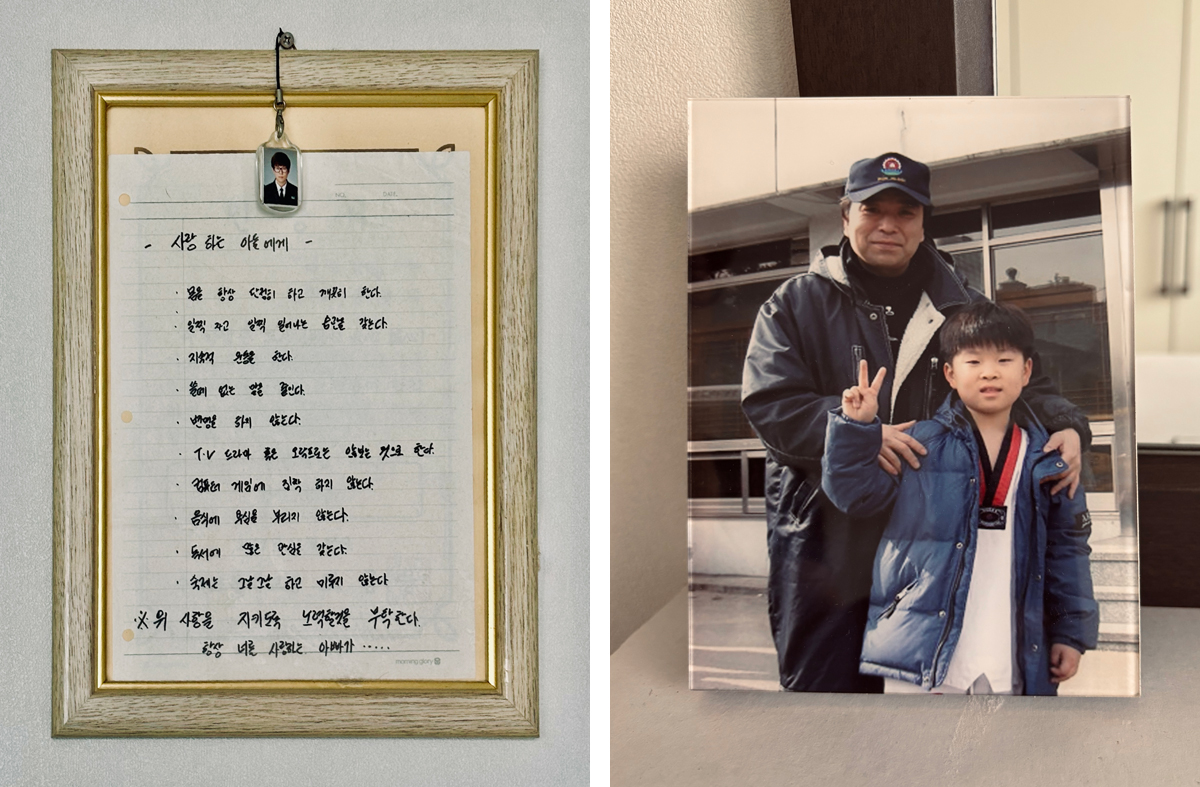 NO. DATE.
- 사랑 하는 아들에게 -
· 몸을 항상 단정히 하고 깨끗이 한다.
· 일찍 자고 일찍 일어나는 습관을 갖는다.
· 지속적 운동을 한다.
· 쓸데 없는 말을 줄인다.
· 변명을 하지 않는다.
· T.V 드라마 혹은 오락프로는 안보는 것으로 한다.
· 컴퓨터 게임에 집착 하지 않는다.
· 음식에 욕심을 부리지 않는다.
· 독서에 많은 관심을 갖는다.
· 숙제는 그날그날 하고 미루지 않는다
※ 위 사항을 지키도록 노력할것을 부탁한다.
항상 너를 사랑하는 아빠가 .....
morning glory